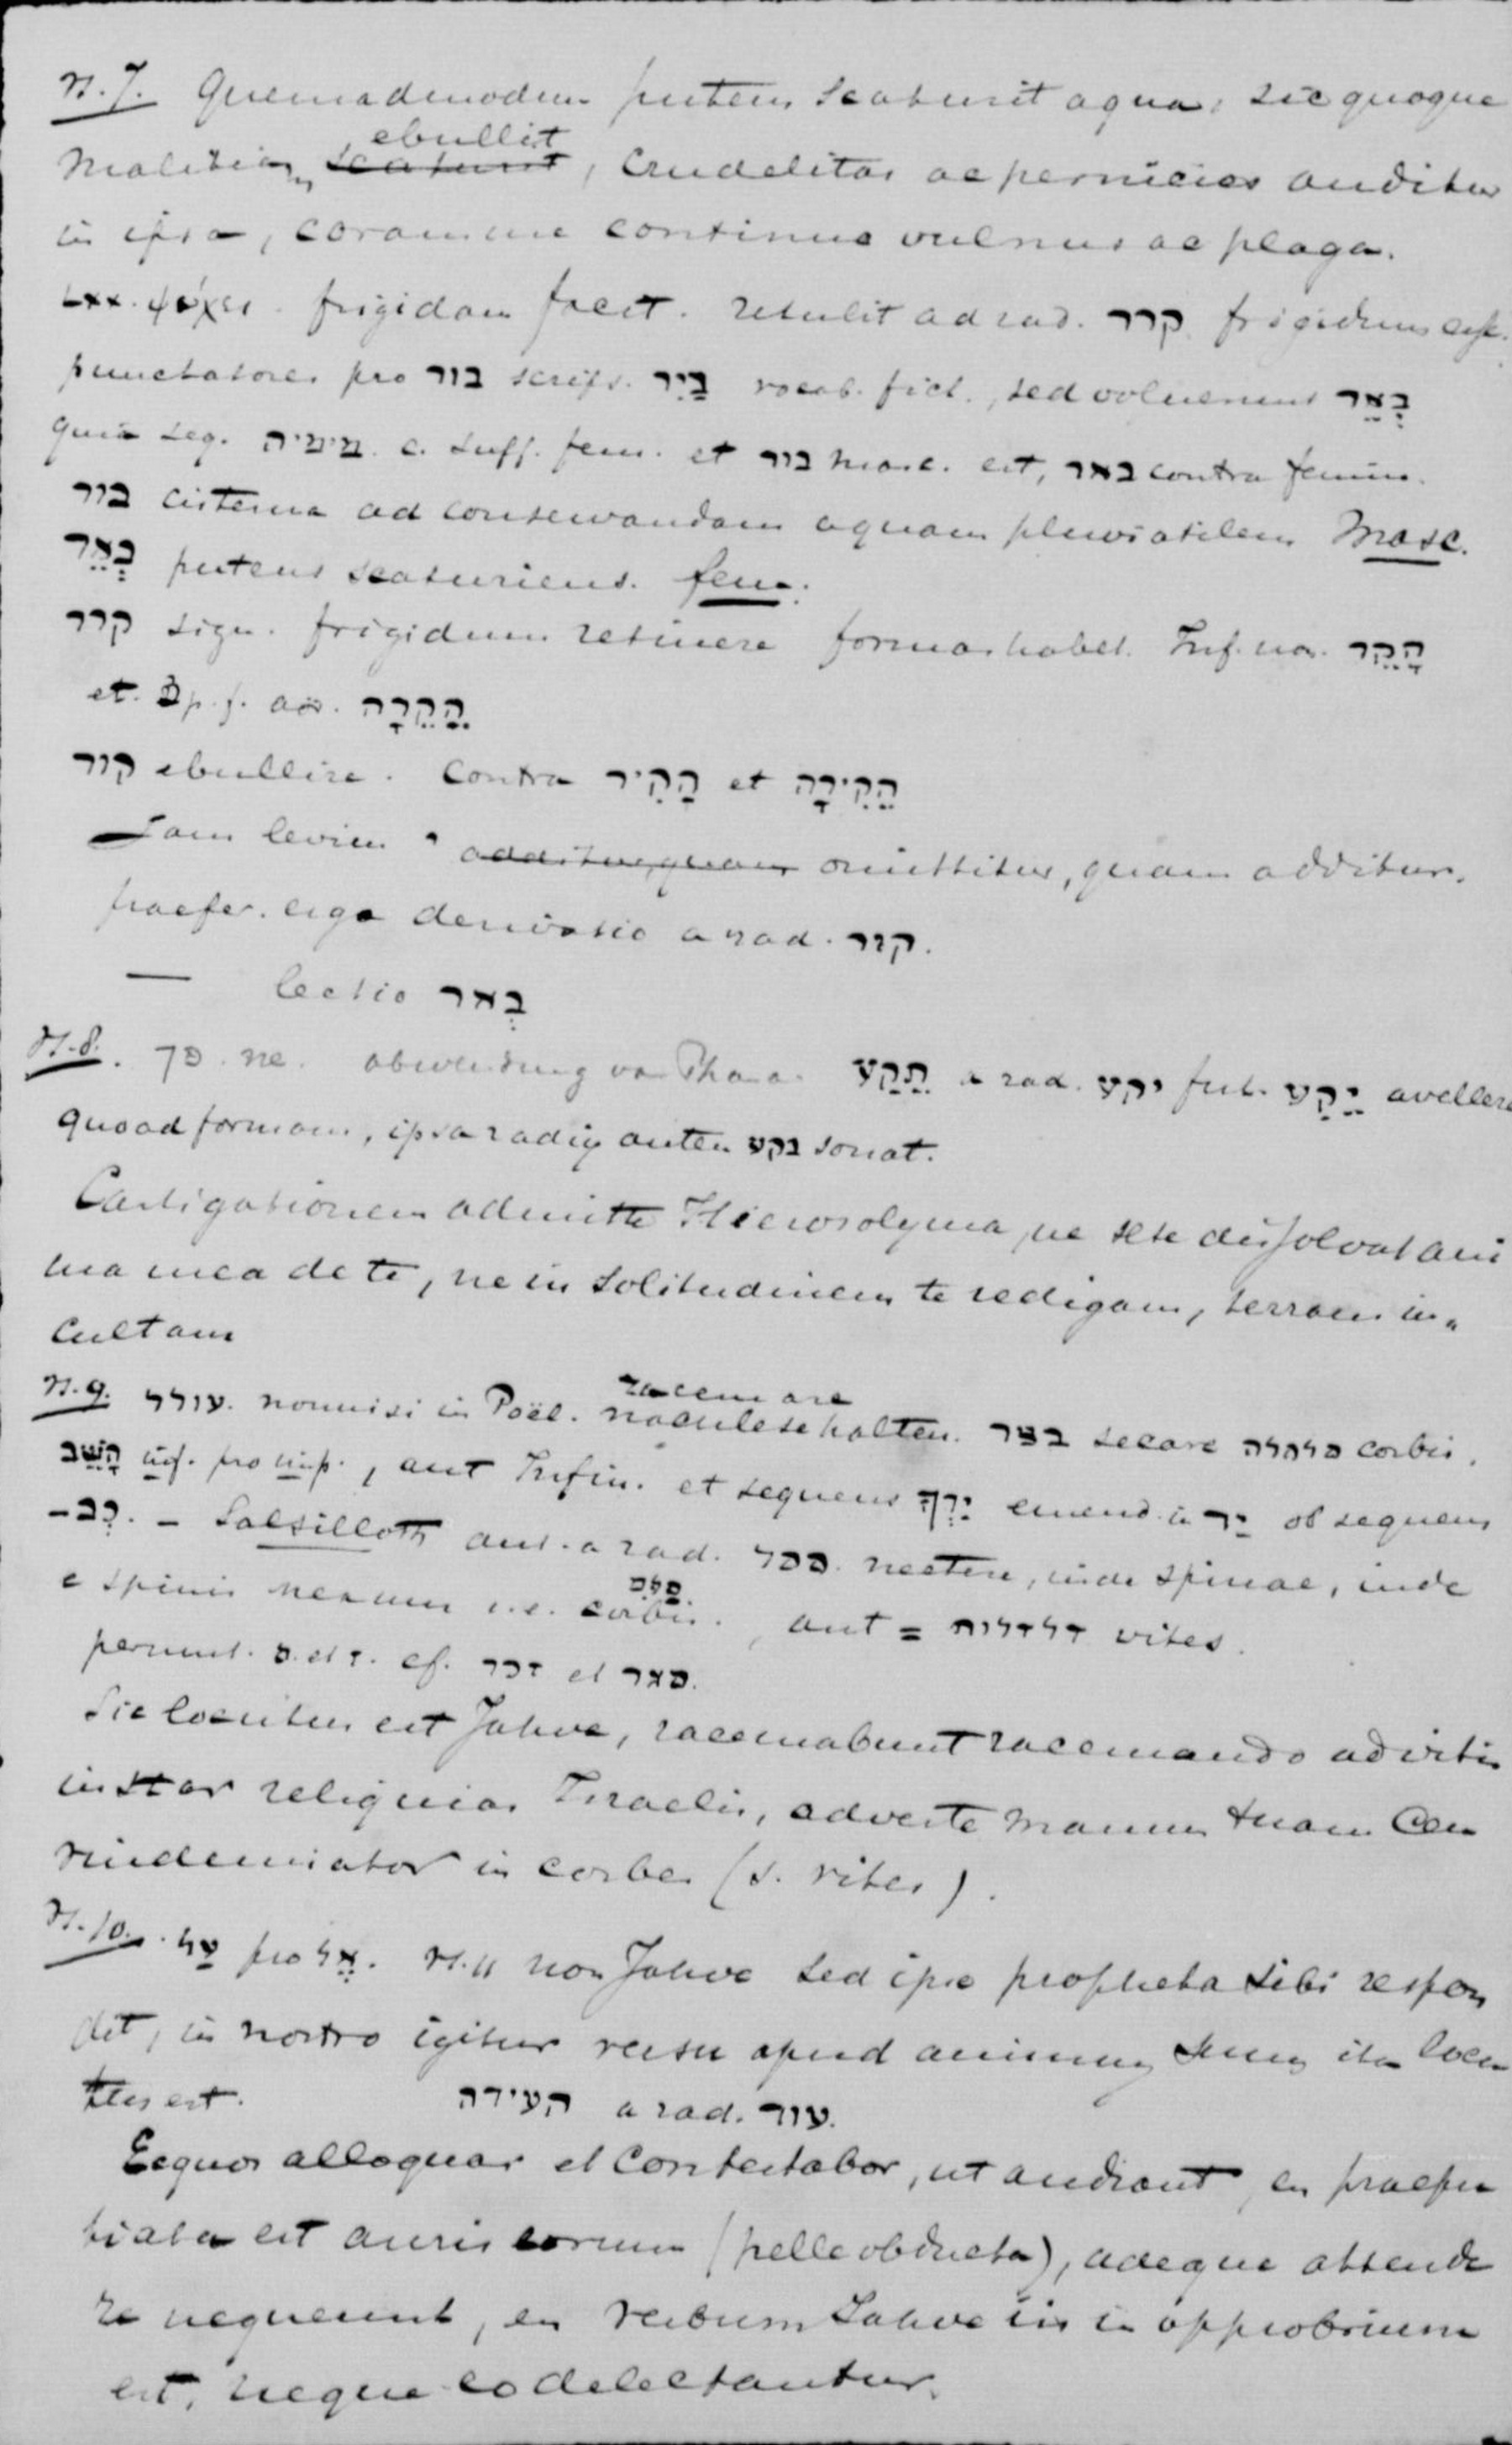 v. 7. Quemadmodum puteus scaturit aqua, sic quoque
malitiam scaturit ebullit, crudelitas ac pernicies auditur
in ipsa, coram me continue vulnus ac plaga.
LXX. ψύχει. frigidam facit. retulit ad rad. קרר frigidum esse.
punctatores pro בור scrips. בַּיִר vocab. fict., sed voluerunt בְּאֵר
quia seq. מימיה c. suff. fem. et בור masc. est, באר contra femin.
בור cisterna ad conservandam aquam pluviatilem masc.
בְּאֵר puteus scaturiens. fem.
קרר sign. frigidum retinere formas habet. Inf. הָקֵר
et 3 p. f. הֵקֵרָה
קור ebullire. Contra הָקִיר et הֱקִירָה
Jam levius י additur, quam omittitur, quam additur.
praefer. ergo derivatio a rad. קור.
— lectio בְּאר
v. 8. פן ne. תֵּקַע a rad. יקע fut. יֵקַע avellere
quoad formam, ipsa radix autem נקע sonat.
Castigationem admitte Hierosolyma, ne sese dissolvat ani
ma mea de te, ne in solitudinem te redigam, terram in„
cultam
v. 9. עולל. nonnisi in Poël. racemare nachlese halten. בצר secare סלסלה corbis.
הָשֵׁב inf. pro imp., aut Infin. et sequens יָדְךָ emend. in יד ob sequens
כְּב-. – Salsilloth aut. a rad. סלל. nectere, inde spinae, inde
e spinis nexum i.e. corbis. סלם, aut = דלדלות vites.
permut. ס. et ד. cf. דכר et סגר.
Sic locutus est Jahve, racemabunt racemando ad vitis
instar reliquias Israelis, adverte manum tuam ceu
vindemiator in corbes (s. vites).
v. 10. עַל pro אֶל. v. 11 non Jahve sed ipse propheta sibi respon
det, in nostro igitur versu apud animum suum ita locu
tus est. העידה a rad. עוד.
Ecquos alloquar et contestabor, ut audiant, en praepu
tiata est auris eorum (pelle obducta), adeque attende
re nequeunt, en verbum Jahve iis in opprobrium
est, neque eo delectantur.